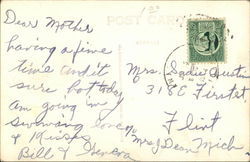 POST CARD
Dear Mother
having a fine
time and it
sure hot today
am going in
swimming love
& Kisses
Bill & Geneva
Mrs. Sadie Austin
318 C First St
Flint
Mich
Mrs Dean